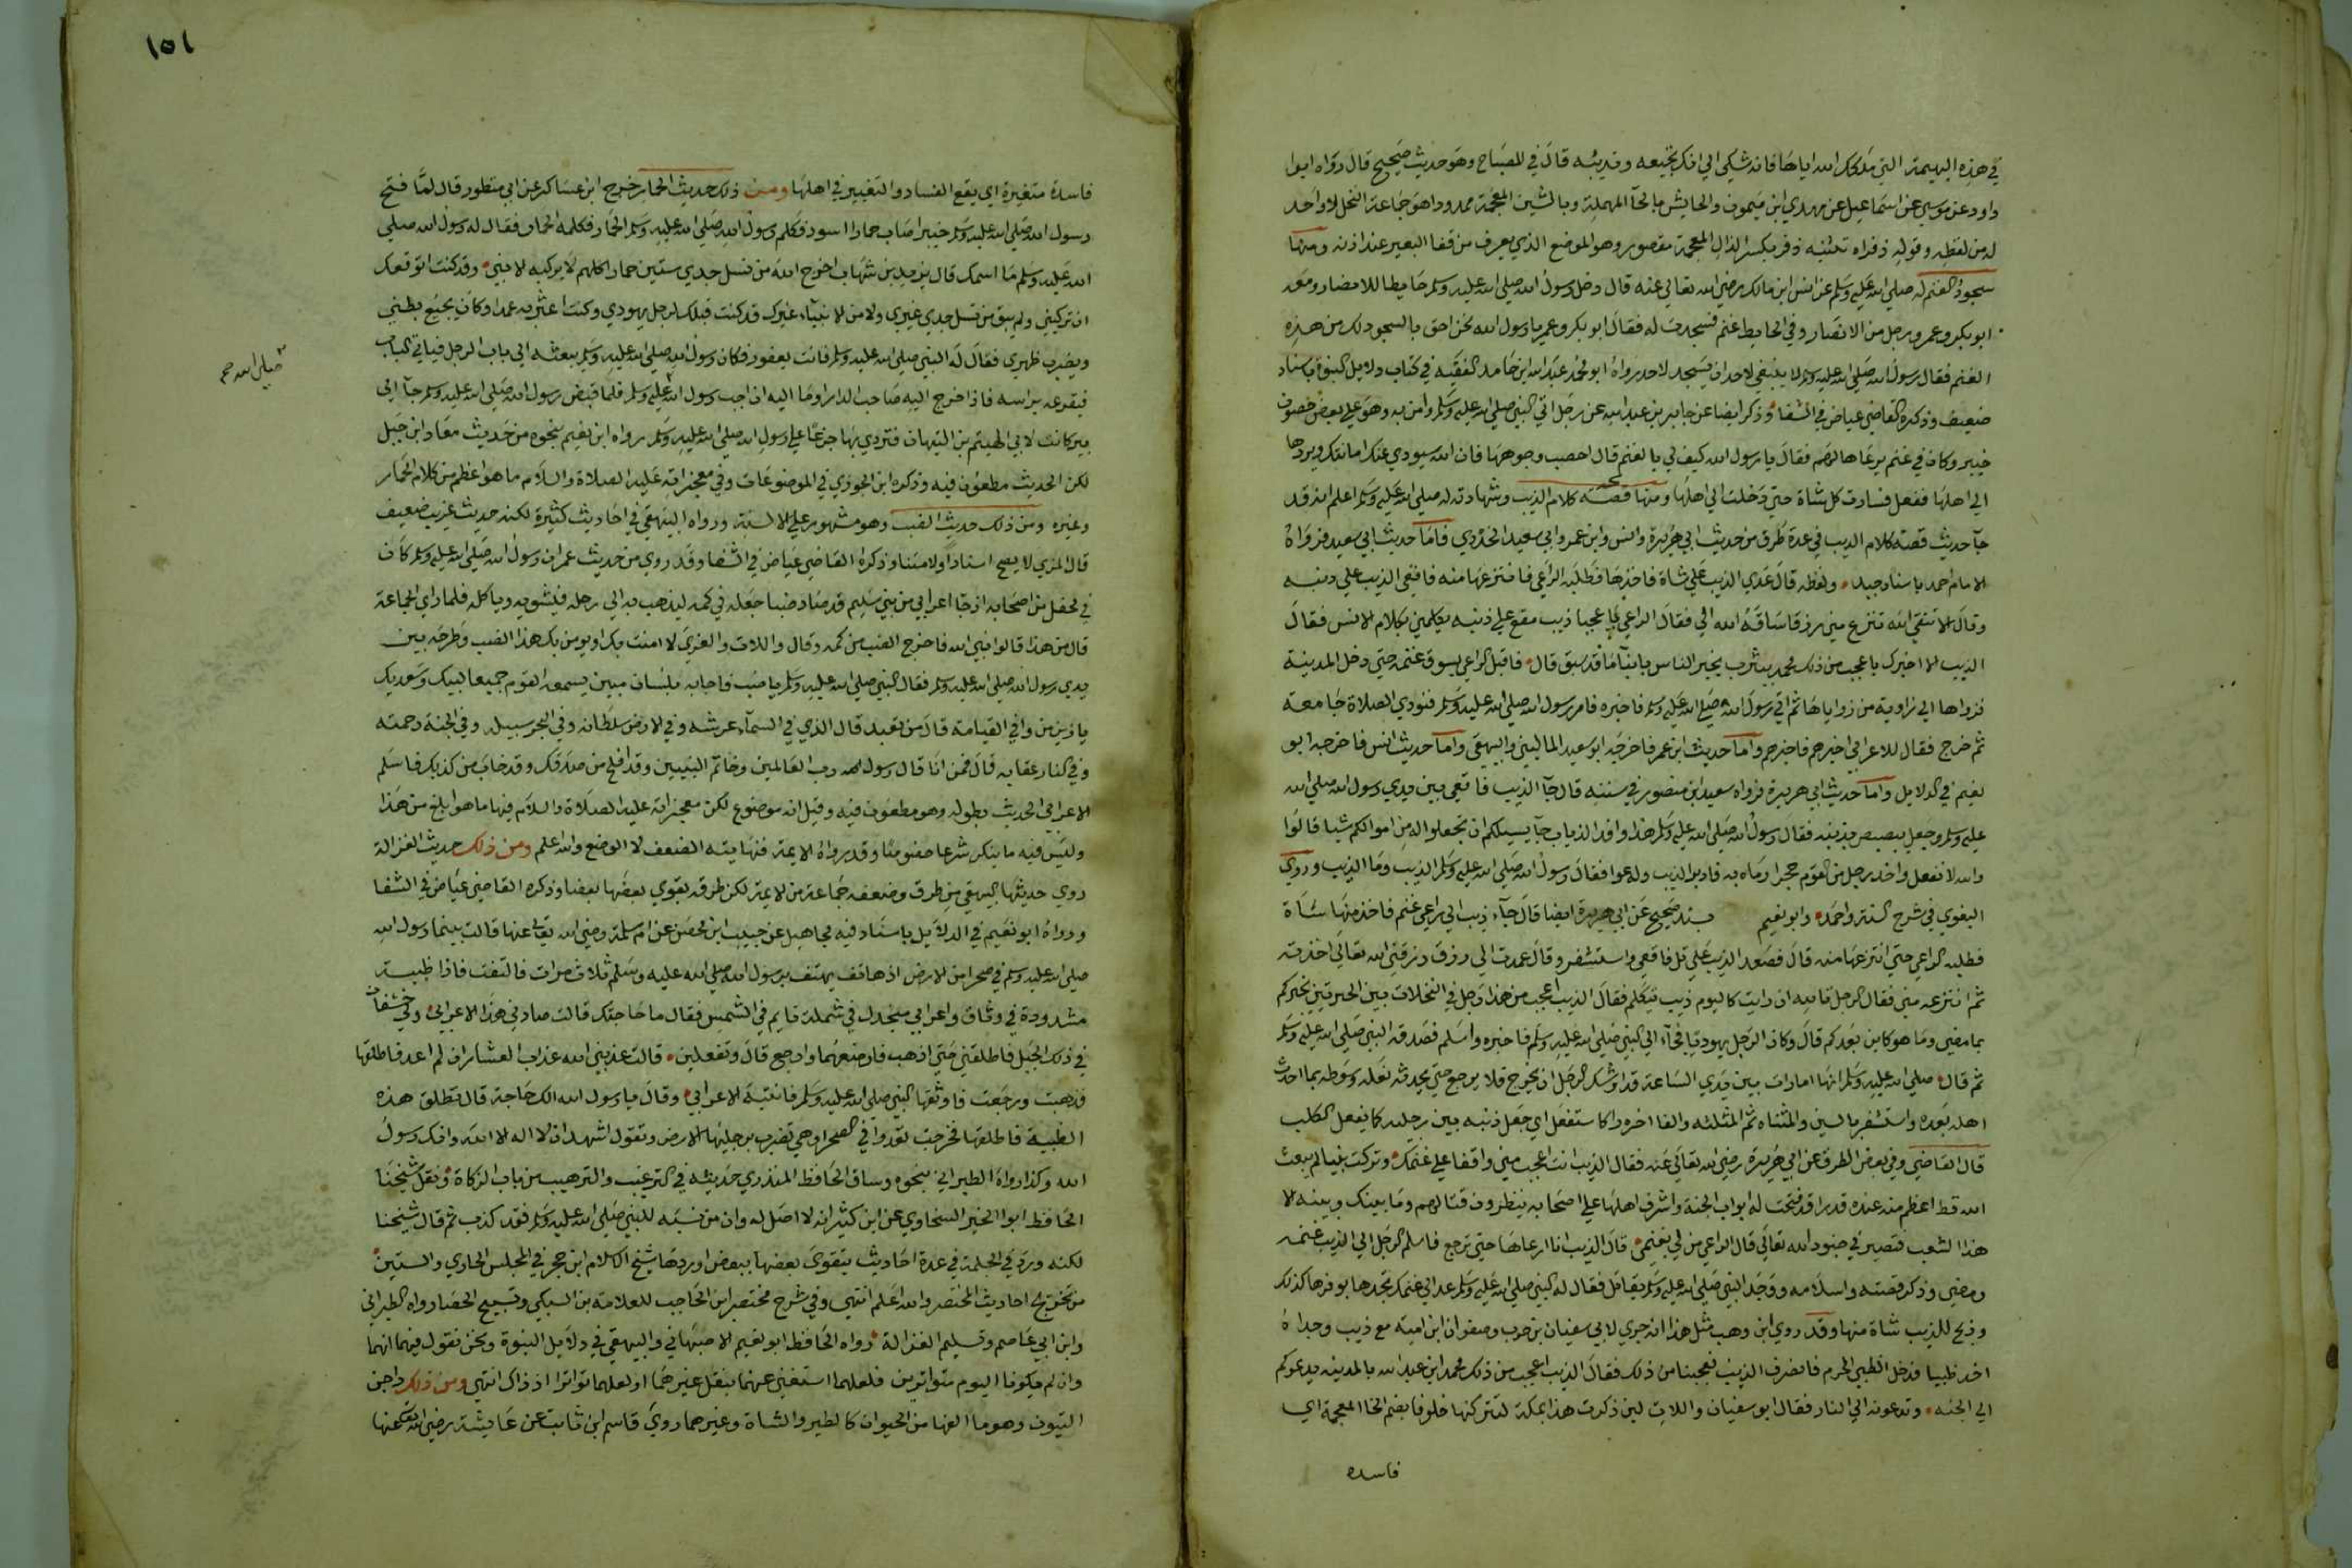 في هذه البهيمة التي ملكك الله اياها فانه شكى الي انك تجيعه وتدئبه قال في المصباح وهو حديث صحيح قال رواه ابوا
داود عن موسى عن اسماعيل عن مهدي ابن ميمون والحايش بالحآ المهملة وبالشين المعجمة ممدودا هو جماعة النخل لا واحد
له من لفظه وقوله ذفراه تثنيه ذفر بكسر الذال المعجمة مقصور وهو الموضع الذي يعرف من قفا البعير عند اذنه ومنها
سجود الغنم له صلى الله عليه وسلم عن انس ابن مالك رضي الله تعالى عنه قال دخل رسول الله صلى الله عليه وسلم حايطا للانصار ومعه
ابو بكر وعمر ورجل من الانصار وفي الحايط غنم فسجدت له فقال ابو بكر وعمر يا رسول الله نحن احق بالسجود لك من هذه
الغنم فقال رسول الله صلى الله عليه وسلم لا ينبغي لاحد ان يسجد لاحد رواه ابو محمد عبد الله ابن حامد الفقيه في كتاب دلايل النبوة باسناد
ضعيف وذكره القاضي عياض في الشفا وذكر ايضا عن جابر بن عبد الله عن رجل اتي النبي صلى الله عليه وسلم وامن به وهو على بعض حصون
خيبر وكان في غنم يرعاها لهم فقال يا رسول الله كيف لي بالغنم قال احصب وجوهها فان الله سيودي عنك امانتك ويردها
الى اهلها ففعل فسارت كل شاة حتى دخلت الى اهلها ومنها قصة كلام الذيب وشهادته له صلى الله عليه وسلم اعلم انه قد
جآ حديث قصة كلام الذيب في عدة طرق من حديث ابي هريرة وانس وابن عمر وابي سعيد الخدري فاما حديث ابي سعيد فرواه
الامام احمد باسناد جيد ولفظه قال عدي الذيب على شاة فاخذها فطلبه الراعي فانتزعها منه فاقعى الذيب على ذنبه
وقال الا تتقي الله تنزع مني رزقا ساقه الله الي فقال الراعي يا عجبا ذيب مقع على ذنبه يكلمني بكلام الانس فقال
الذيب الا اخبرك باعجب من ذلك محمد بيثرب يخبر الناس بانبآ ما قد سبق قال فاقبل الراعي يسوق غنمه حتى دخل المدينة
فزواها الى زاوية من زواياها ثم اتى رسول الله صلى الله عليه وسلم فاخبره فامر رسول الله صلى الله عليه وسلم فنودي الصلاة جامعة
ثم خرج فقال للاعرابي اخبرهم فاخبرهم واما حديث ابن عمر فاخرجه ابو سعيد الماليني والبيهقي واما حديث انس فاخرجه ابو
نعيم في الدلايل واما حديث ابي هريرة فرواه سعيد ابن منصور في سننه قال جآ الذيب فاقعى بين يدي رسول الله صلى الله
عليه وسلم وجعل يبصبص بذنبه فقال رسول الله صلى الله عليه وسلم هذا وافد الذياب جآ يسيلكم ان تجعلوا له من اموالكم شيا قالوا
والله لا نفعل واخذ رجل من القوم حجرا ورماه به فادبر الذيب وله عوا فقال رسول الله صلى الله عليه وسلم الذيب وما الذيب وروى
البغوي في شرح السنة واحمد وابو نعيم بسند صحيح عن ابي هريرة ايضا قال جآء ذيب الى راعي غنم فاخذ منها شاة
فطلبه الراعي حتى انتزعها منه قال فصعد الذيب على تل فاقعى واستثفر وقال عمدت الى رزق رزقني الله تعالى اخذته
ثم انتزعته مني فقال الرجل تالله ان رايت كاليوم ذيب يتكلم فقال الذيب اعجب من هذا رجل في النخلات بين الحرتين يخبركم
بما مضى وما هو كاين بعدكم قال وكان الرجل يهوديا فجآء الى النبي صلى الله عليه وسلم فاخبره واسلم فصدقه النبي صلى الله عليه وسلم
ثم قال صلى الله عليه وسلم انها امارات بين يدي الساعة قد اوشك الرجل ان يخرج فلا يرجع حتى يحدثه نعله وسوطه بما احدث
اهله بعده واستثفر بالسين والمثناه ثم المثلثه والفا اخره را كاستفعل اي جعل ذنبه بين رجليه كما يفعل الكلب
قال القاضي وفي بعض الطرق عن ابي هريرة رضي الله تعالى عنه فقال الذيب انت اعجب مني واقفا على غنمك وتركت نبيا لم يبعث
الله قط اعظم منه عنده قدرا قد فتحت له ابواب الجنة واشرف اهلها على اصحابه ينظرون قتالهم وما بينك وبينه الا
هذا الشعب فتصير في جنود الله تعالى قال الراعي من لي بغنمي قال الذيب انا ارعاها حتى ترجع فاسلم الرجل الى الذيب غنمه
ومضى وذكر قصته واسلامه ووجد النبي صلى الله عليه وسلم يقاتل فقال له النبي صلى الله عليه وسلم عد الى غنمك تجدها بوفرها كذلك
وذبح للذيب شاة منها وقد روى ابن وهب مثل هذا انه جرى لابي سفيان بن حرب وصفوان ابن امية مع ذيب وجداه
اخذ ظبيا فدخل الظبي الحرم فانصرف الذيب فعجبنا من ذلك فقال الذيب اعجب من ذلك محمد ابن عبد الله بالمدينه يدعوكم
الى الجنه وتدعونه الى النار فقال ابو سفيان واللات لين ذكرت هذا بمكة لتتركنها خلوفا بضم الخا المعجمة اي
فاسده
١٥١
فاسدة متغيرة اي يقع الفساد والتغيير في اهلها ومن ذلك حديث الحمار خرج ابن عساكر عن ابي منظور قال لما فتح
رسول الله صلى الله عليه وسلم خيبر اصاب حمارا اسود فكلم رسول الله صلى الله عليه وسلم الحمار فكلمه الحمار فقال له رسول الله صلى
الله عليه وسلم ما اسمك قال يزيد بن شهاب اخرج الله من نسل جدي ستين حمارا كلهم لا يركبه الا نبي وقد كنت اتوقعك
ان تركبني ولم يبق من نسل جدي غيري ولا من الانبيآء غيرك قد كنت قبلك لرجل يهودي وكنت اعثر به عمدا وكان يجيع بطني
ويضرب ظهري فقال له النبي صلى الله عليه وسلم فانت يعفور فكان رسول الله صلى الله عليه وسلم يبعثه الى باب الرجل فياتي الباب
فيقرعه براسه فاذا خرج اليه صاحب الدار اوما اليه ان اجب رسول الله عليه وسلم فلما قبض رسول الله صلى الله عليه وسلم جآ الى
صلى الله صح
بير كانت لابي الهيثم بن التيهان فتردى بها جزعا على رسول الله صلى الله عليه وسلم رواه ابن نعيم بنحوه من حديث معاذ ابن جبل
لكن الحديث مطعون فيه وذكره ابن الجوزي في الموضوعات وفي معجزاته عليه الصلاة والسلام ما هو اعظم من كلام الحمار
وغيره ومن ذلك حديث الضب وهو مشهور على الالسنة ورواه البيهقي في احاديث كثيرة لكنه حديث غريب ضعيف
قال المزي لا يصح اسنادا ولا متنا وذكره القاضي عياض في الشفا وقد روي من حديث عمر ان رسول الله صلى الله عليه وسلم كان
في محفل من اصحابه اذ جا اعرابي من بني سليم قد صاد ضبا جعله في كمه ليذهب به الى رحله فيشويه وياكله فلما راى الجماعة
قال من هذا قالوا نبي الله فاخرج الضب من كمه وقال واللات والعزى لا امنت بك او يومن بك هذا الضب وطرحه بين
يدي رسول الله صلى الله عليه وسلم فقال النبي صلى الله عليه وسلم يا ضب فاجابه بلسان مبين يسمعه القوم جميعا لبيك وسعديك
يا زين من وافى القيامة قال من تعبد قال الذي في السمآء عرشه وفي الارض سلطانه وفي البحر سبيله وفي الجنة رحمته
وفي النار عقابه قال فمن انا قال رسول الله رب العالمين وخاتم النبيين وقد افلح من صدقك وقد خاب من كذبك فاسلم
الاعرابي الحديث بطوله وهو مطعون فيه وقيل انه موضوع لكن معجزاته عليه الصلاة والسلام فيها ما هو ابلغ من هذا
وليس فيه ما ينكر شرعا خصوصا وقد رواه الايمة فنهايته الضعف لا الوضع والله اعلم ومن ذلك حديث الغزالة
روى حديثها البيهقي من طرق وضعفه جماعة من الايمة لكن طرقه يقوي بعضها بعضا وذكره القاضي عياض في الشفا
ورواه ابو نعيم في الدلايل باسناد فيه مجاهيل عن حبيب ابن محصن عن ام سلمة رضي الله تعالى عنها قالت بينما رسول الله
صلى الله عليه وسلم في صحرا من الارض اذ هاتف يهتف يا رسول الله صلى الله عليه وسلم ثلاث مرات فالتفت فاذا ظبية
مشدودة في وثاق واعرابي منجدل في شملة نايم في الشمس فقال ما حاجتك قالت صادني هذا الاعرابي ولي خشفان
في ذلك الجبل فاطلقني حتى اذهب فارضعهما وارجع قال وتفعلين قالت عذبني الله عذاب العشار ان لم اعد فاطلقها
فذهبت ورجعت فاوثقها النبي صلى الله عليه وسلم فانتبه الاعرابي وقال يا رسول الله الك حاجة قال تطلق هذه
الظبية فاطلقها فخرجت تعدوا في الصحرا وهي تضرب برجليها الارض وتقول اشهد ان لا اله الا الله وانك رسول
الله وكذا رواه الطبراني بنحوه وساق الحافظ المنذري حديثه في الترغيب والترهيب من باب الزكاة ونقل شيخنا
الحافظ ابوا الخير السخاوي عن ابن كثير انه لا اصل له وان من نسبه للنبي صلى الله عليه وسلم فقد كذب ثم قال شيخنا
لكنه ورد في الجملة في عدة احاديث يتقوى بعضها ببعض اوردها شيخ الاسلام ابن حجر في المجلس الحادي والستين
من تخريج احاديث المختصر والله اعلم انتهى وفي شرح مختصر ابن الحاجب للعلامة بن السبكي وتسبيح الحصا رواه الطبراني
وابن ابي عاصم وتسليم الغزالة رواه الحافظ ابو نعيم الاصبهاني والبيهقي في دلايل النبوة ونحن نقول فيهما انهما
وان لم يكونا اليوم متواترين فلعلهما استغني عنهما بنقل غيرهما او لعلهما تواترا اذ ذاك انتهى ومن ذلك داجن
البيوت وهو ما الفها من الحيوان كالطير والشاة وغيرهما روى قاسم ابن ثابت عن عايشة رضي الله تعالى عنها